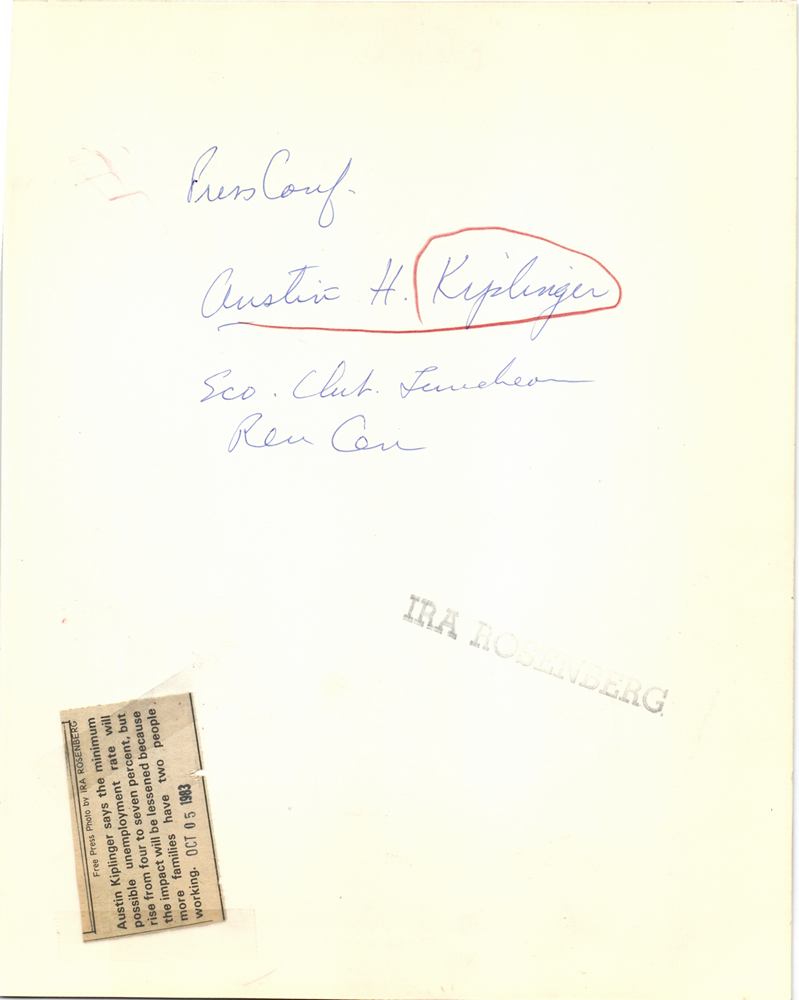 Press Conf.
Austin H. Kiplinger
Eco. Club. Luncheon
Ren Cen
IRA ROSENBERG
Free Press Photo by IRA ROSENBERG
Austin Kiplinger says the minimum
possible unemployment rate will
rise from four to seven percent, but
the impact will be lessened because
more families have two people
working. OCT 05 1983